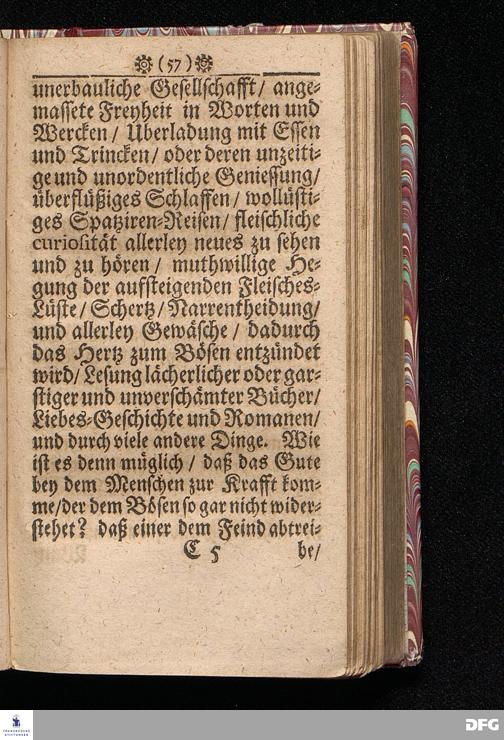 (57)
unerbauliche Gesellschafft/ ange⸗
massete Freyheit in Worten und
Wercken/ Uberladung mit Essen
und Trincken/ oder deren unzeiti⸗
ge und unordentliche Geniessung/
überflüßiges Schlaffen/ wollüsti⸗
ges Spatziren⸗Reisen/ fleischliche
curiosität allerley neues zu sehen
und zu hören/ muthwillige He⸗
gung der auffsteigenden Fleisches⸗
Lüste/ Schertz/ Narrentheidung/
und allerley Gewäsche/ dadurch
das Hertz zum Bösen entzündet
wird/ Lesung lächerlicher oder gar⸗
stiger und unverschämter Bücher/
Liebes⸗Geschichte und Romanen/
und durch viele andere Dinge. Wie
ist es denn müglich/ daß das Gute
bey dem Menschen zur Krafft kom⸗
me/der dem Bösen so gar nicht wider⸗
stehet? daß einer dem Feind abtrei⸗
C 5 be/
FRANCKESCHE STIFTUNGEN
DFG